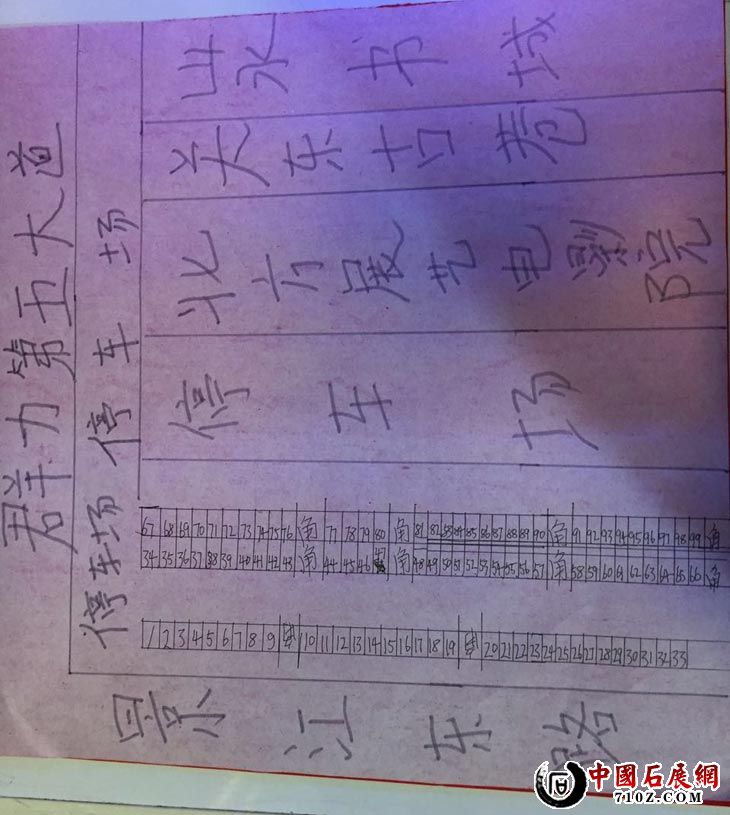 山水书城
关东古巷
北方展艺电影院
停车场
群力第五大道
停车场
停车场
67 68 69 70 71 72 73 74 75 76 角 77 78 79 80 角 81 82 83 84 85 86 87 88 89 90 角 91 92 93 94 95 96 97 98 99 角
34 35 36 37 38 39 40 41 42 43 角 44 45 46 47 角 48 49 50 51 52 53 54 55 56 57 角 58 59 60 61 62 63 64 65 66 角
1 2 3 4 5 6 7 8 9 10 11 12 13 14 15 16 17 18 19 20 21 22 23 24 25 26 27 28 29 30 31 32 33
景江东路
中國石展網
710Z.COM